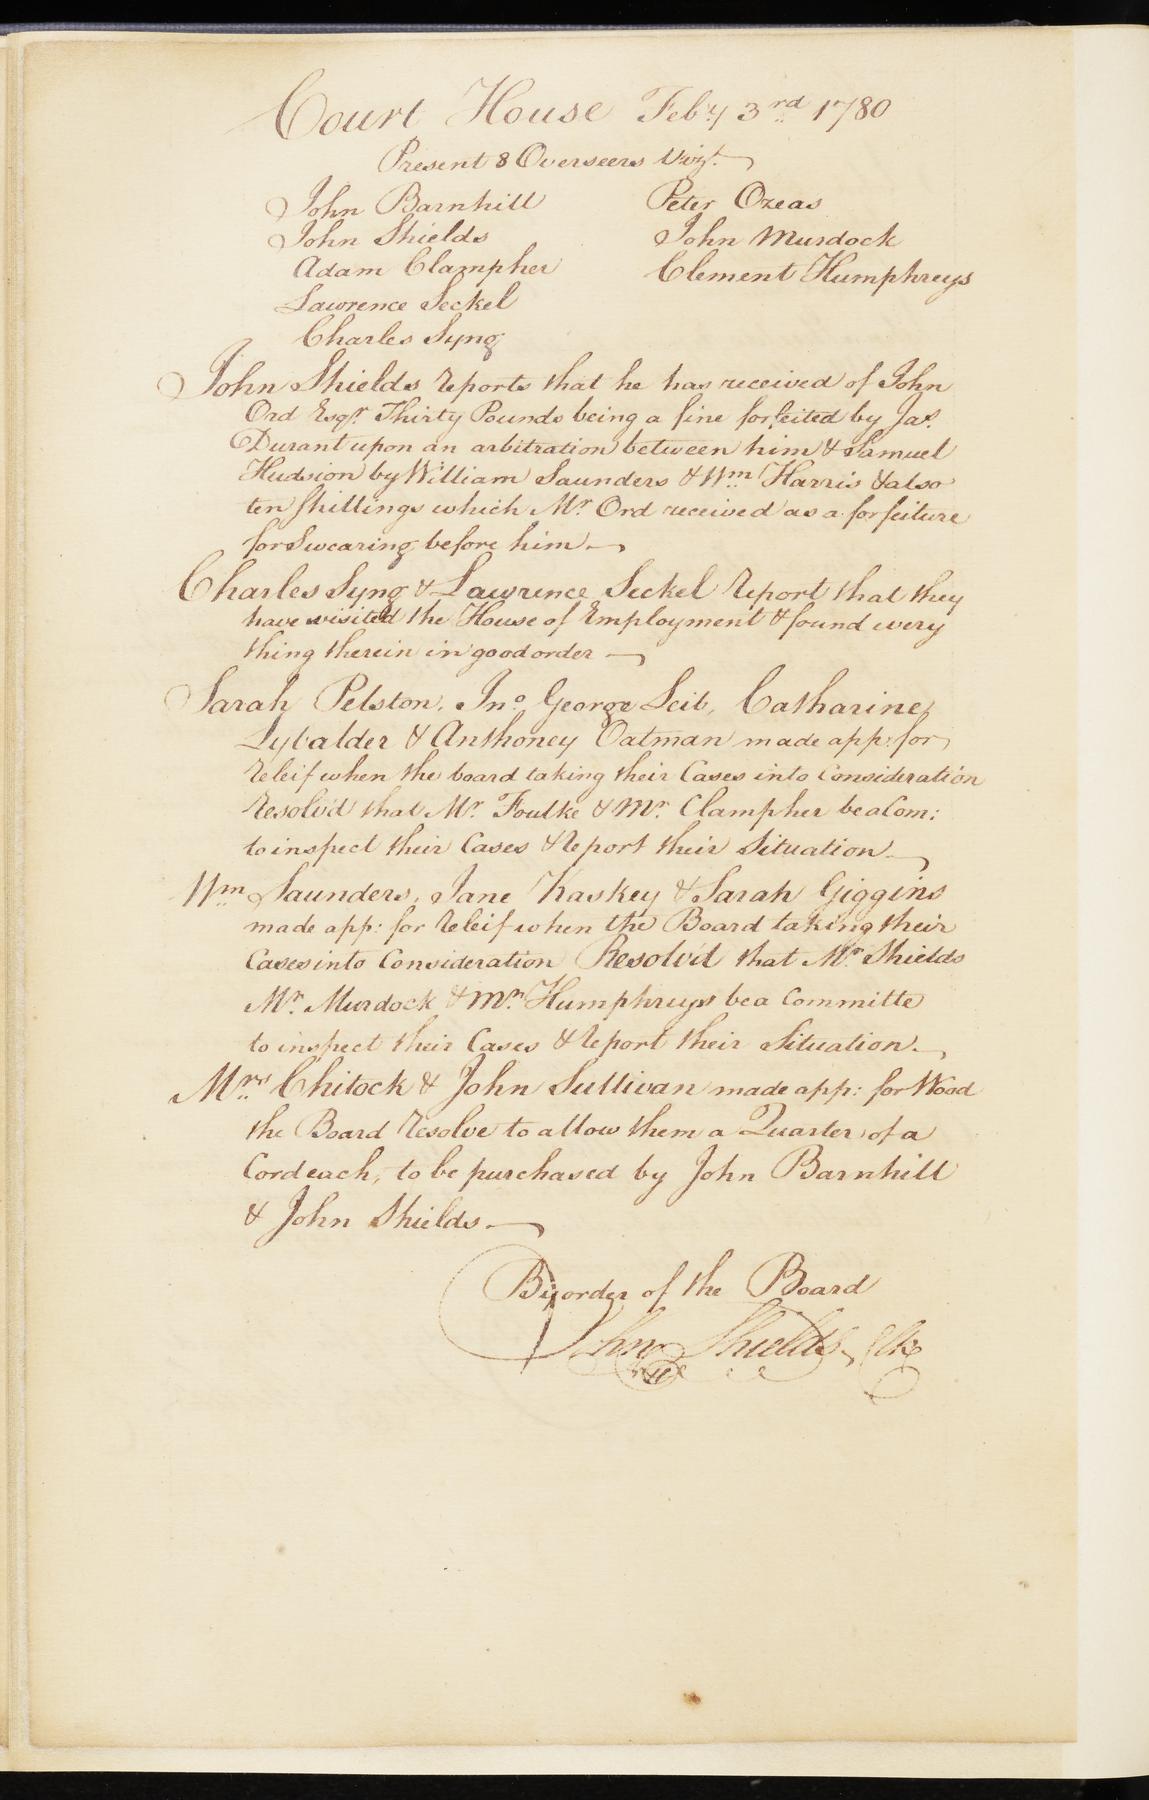 Court House Feb.y 3rd 1780
Present 8 Overseers Vizt.
John Barnhill Peter Ozeas
John Shields John Murdock
Adam Clampher Clement Humphreys
Lawrence Seckel
Charles Syng
John Shields reports that he has received of John
Ord Esqr. Thirty Pounds being a fine forfeited by Jas.
Durant upon an arbitration between him & Samuel
Hudsion by William Saunders & Wm Harris & also
ten Shillings which Mr Ord received as a forfeiture
for Swearing before him.
Charles Syng & Lawrence Seckel report that they
have visited the House of Employment & found every
thing therein in good order
Sarah Pelston, Jno. George Leib, Catharine
Lybalder & Anthoney Oatman made app: for
releif when the board taking their Cases into Consideration
resolv'd that Mr. Foulke & Mr. Clampher be a Com:
to inspect their Cases & report their Situation
Wm Saunders, Jane Kaskey & Sarah Giggins
made app: for releif when the Board taking their
Cases into Consideration Resolv'd that Mr. Shields
Mr. Murdock & Mr. Humphreys be a Committe
to inspect their Cases & report their Situation.
Mrs Chitock & John Sullivan made app: for Wood
the Board resolve to allow them a Quarter of a
Cord each, to be purchased by John Barnhill
& John Shields.
By order of the Board
John Shields Clk